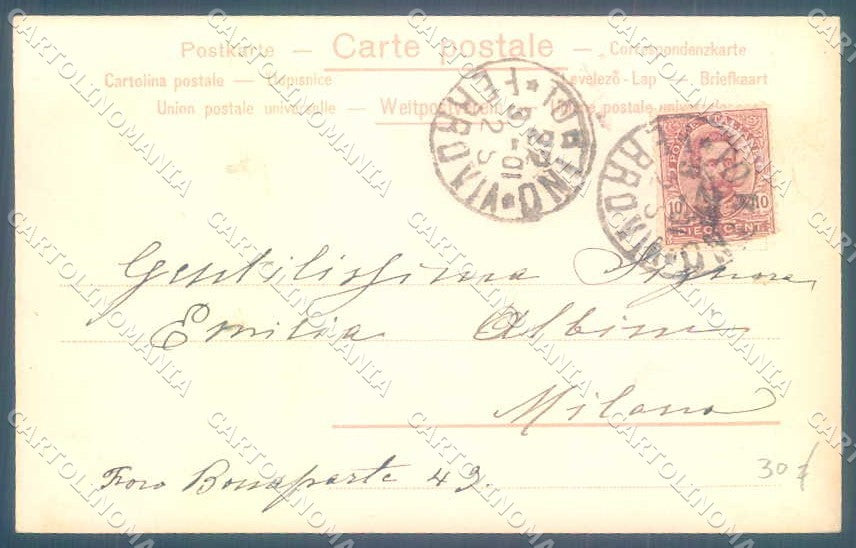 Postkarte — Carte postale — Correspondenzkarte
Cartolina postale — Dopisnice — Levelező-Lap — Briefkaart
Union postale universelle — Weltpostverein — Unione postale universale
TORINO
FERROVIA
10 10
DIECI CENT
TORINO
FERROVIA
Gentilissima Signora
Emilia Albini
Milano
Foro Bonaparte 49.
30
CARTOLINOMANIA